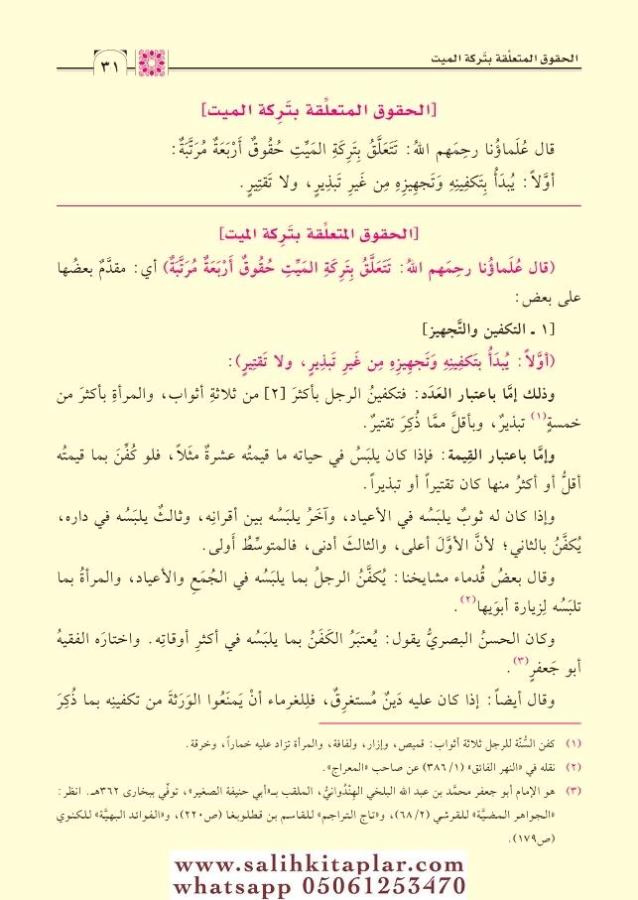 الحقوق المتعلّقة بتَركة الميت
٣١
[الحقوق المتعلِّقة بتَرِكة الميت]
قال عُلَماؤُنا رحِمَهم اللهُ: تَتَعَلَّقُ بِتَرِكَةِ المَيِّتِ حُقُوقٌ أَرْبَعَةٌ مُرَتَّبَةٌ:
أوَّلاً: يُبدَأُ بِتَكفِينِهِ وَتَجهِيزِهِ مِن غَيرِ تَبذِيرٍ، ولا تَقتِيرٍ.
[الحقوق المتعلِّقة بتَرِكة الميت]
(قال عُلَماؤُنا رحِمَهم اللهُ: تَتَعَلَّقُ بِتَرِكَةِ المَيِّتِ حُقُوقٌ أَرْبَعَةٌ مُرَتَّبَةٌ) أي: مقدَّمٌ بعضُها
على بعض:
[١ ـ التكفين والتَّجهيز]
(أوَّلاً: يُبدَأُ بتَكفِينِهِ وَتَجهِيزِهِ مِن غَيرِ تَبذِيرٍ، ولا تَقتِيرٍ):
وذلك إمَّا باعتبار العَدَد: فتكفينُ الرجل بأكثرَ [٢] من ثلاثةِ أثواب، والمرأةِ بأكثرَ من
خمسةٍ(١) تبذيرٌ، وبأقلَّ ممَّا ذُكِرَ تقتيرٌ.
وإمَّا باعتبار القِيمة: فإذا كان يلبَسُ في حياته ما قيمتُه عشرةٌ مثَلاً، فلو كُفِّنَ بما قيمتُه
أقلُّ أو أكثرُ منها كان تقتيراً أو تبذيراً.
وإذا كان له ثوبٌ يلبَسُه في الأعياد، وآخَرُ يلبَسُه بين أقرانِه، وثالثٌ يلبَسُه في داره،
يُكفَّنُ بالثاني؛ لأنَّ الأوَّلَ أعلى، والثالثَ أدنى، فالمتوسِّطُ أَولى.
وقال بعضُ قُدماء مشايخنا: يُكفَّنُ الرجلُ بما يلبَسُه في الجُمَعِ والأعياد، والمرأةُ بما
تلبَسُه لِزيارة أبوَيها(٢).
وكان الحسنُ البصريُّ يقول: يُعتبَرُ الكَفَنُ بما يلبَسُه في أكثرِ أوقاتِه. واختارَه الفقيهُ
أبو جَعفرٍ(٣).
وقال أيضاً: إذا كان عليه دَينٌ مُستغرِقٌ، فلِلغرماء أنْ يَمنَعُوا الوَرَثةَ من تكفينِه بما ذُكِرَ
(١) كفن السُّنّة للرجل ثلاثة أثواب: قميص، وإزار، ولفافة، والمرأة تزاد عليه خماراً، وخرقة.
(٢) نقله في «النهر الفائق» (٣٨٦/١) عن صاحب «المعراج».
(٣) هو الإمام أبو جعفر محمَّد بن عبد الله البلخي الهِنْدُوانيُّ، الملقب بـ«أبي حنيفة الصغير»، توفّي ببخارى ٣٦٢هـ. انظر:
«الجواهر المضيَّة» للقرشي (٦٨/٢)، و«تاج التراجم» للقاسم بن قطلوبغا (ص٢٢٠)، و«الفوائد البهيَّة» للكنوي
(ص١٧٩).
www.salihkitaplar.com
whatsapp 05061253470